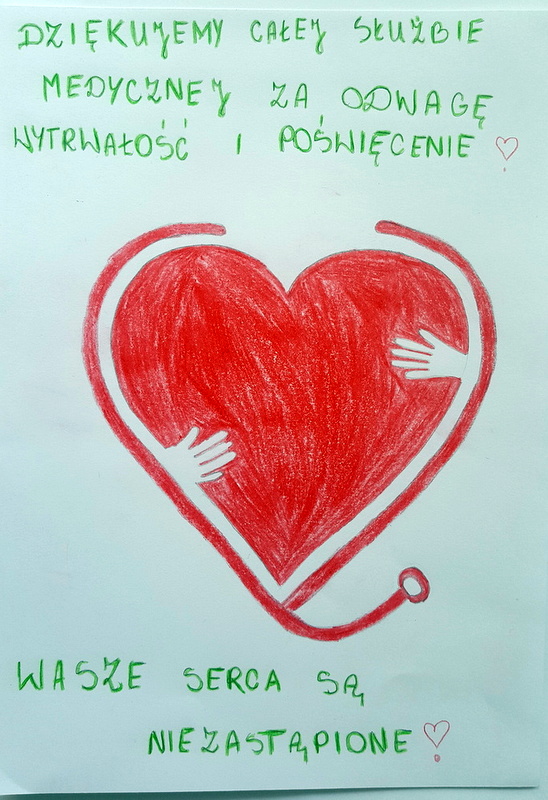 DZIĘKUJEMY CAŁEJ SŁUŻBIE
MEDYCZNEJ ZA ODWAGĘ
WYTRWAŁOŚĆ I POŚWIĘCENIE
WASZE SERCA SĄ
NIEZASTĄPIONE